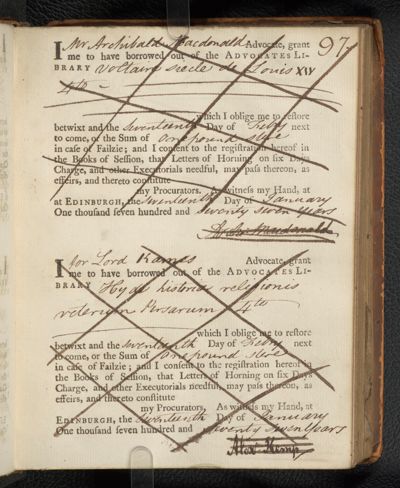 97
I Mr. Archibald Macdonald Advocate, grant
me to have borrowed out of the ADVOCATES LI-
BRARY Voltaire siecle de Louis XIV
4to -
which I oblige me to reſtore
betwixt and the seventeenth Day of Febry next
to come, or the Sum of one pound ster
in caſe of Failzie; and I conſent to the regiſtration hereof in
the Books of Seſſion, that Letters of Horning on ſix Days
Charge, and other Executorials needful, may paſs thereon, as
effeirs, and thereto conſtitute
my Procurators. As witneſs my Hand, at
at EDINBURGH, the seventeenth Day of January
One thouſand ſeven hundred and seventy seven years
Macdonald
I for Lord Kames Advocate, grant
me to have borrowed out of the ADVOCATES LI-
BRARY Hyde historia religionis
veterum Persarum 4to
which I oblige me to reſtore
betwixt and the seventeenth Day of Febry next
to come, or the Sum of one pound ster
in caſe of Failzie; and I conſent to the regiſtration hereof in
the Books of Seſſion, that Letters of Horning on ſix Days
Charge, and other Executorials needful, may paſs thereon, as
effeirs, and thereto conſtitute
my Procurators, As witneſs my Hand, at
EDINBURGH, the seventeenth Day of January
One thouſand ſeven hundred and seventy seven years
Alexr Kemp